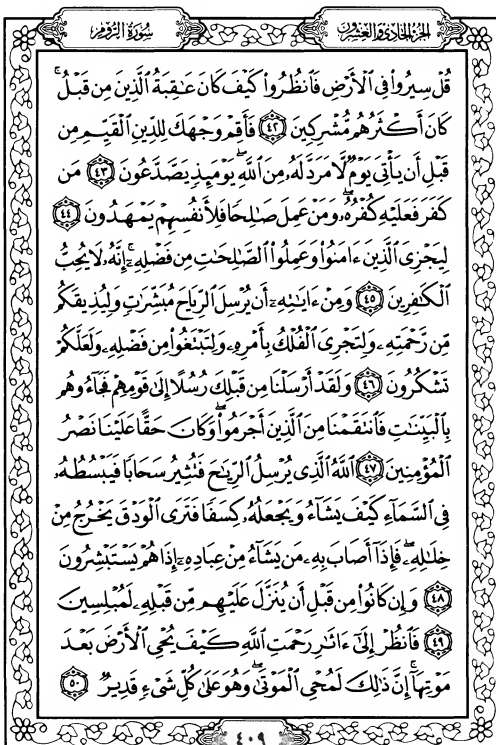 سُورَةُ الرُّومِ
الجُزْءُ الحَادِي وَالعِشْرُونَ
قُلْ سِيرُوا۟ فِى ٱلْأَرْضِ فَٱنظُرُوا۟ كَيْفَ كَانَ عَـٰقِبَةُ ٱلَّذِينَ مِن قَبْلُ ۚ
كَانَ أَكْثَرُهُم مُّشْرِكِينَ ٤٢ فَأَقِمْ وَجْهَكَ لِلدِّينِ ٱلْقَيِّمِ مِن
قَبْلِ أَن يَأْتِىَ يَوْمٌ لَّا مَرَدَّ لَهُۥ مِنَ ٱللَّهِ ۖ يَوْمَئِذٍ يَصَّدَّعُونَ ٤٣ مَن
كَفَرَ فَعَلَيْهِ كُفْرُهُۥ ۖ وَمَنْ عَمِلَ صَـٰلِحًا فَلِأَنفُسِهِمْ يَمْهَدُونَ ٤٤
لِيَجْزِىَ ٱلَّذِينَ ءَامَنُوا۟ وَعَمِلُوا۟ ٱلصَّـٰلِحَـٰتِ مِن فَضْلِهِۦٓ ۚ إِنَّهُۥ لَا يُحِبُّ
ٱلْكَـٰفِرِينَ ٤٥ وَمِنْ ءَايَـٰتِهِۦٓ أَن يُرْسِلَ ٱلرِّيَاحَ مُبَشِّرَٰتٍ وَلِيُذِيقَكُم
مِّن رَّحْمَتِهِۦ وَلِتَجْرِىَ ٱلْفُلْكُ بِأَمْرِهِۦ وَلِتَبْتَغُوا۟ مِن فَضْلِهِۦ وَلَعَلَّكُمْ
تَشْكُرُونَ ٤٦ وَلَقَدْ أَرْسَلْنَا مِن قَبْلِكَ رُسُلًا إِلَىٰ قَوْمِهِمْ فَجَآءُوهُم
بِٱلْبَيِّنَـٰتِ فَٱنتَقَمْنَا مِنَ ٱلَّذِينَ أَجْرَمُوا۟ ۖ وَكَانَ حَقًّا عَلَيْنَا نَصْرُ
ٱلْمُؤْمِنِينَ ٤٧ ٱللَّهُ ٱلَّذِى يُرْسِلُ ٱلرِّيَـٰحَ فَتُثِيرُ سَحَابًا فَيَبْسُطُهُۥ
فِى ٱلسَّمَآءِ كَيْفَ يَشَآءُ وَيَجْعَلُهُۥ كِسَفًا فَتَرَى ٱلْوَدْقَ يَخْرُجُ مِنْ
خِلَـٰلِهِۦ ۖ فَإِذَآ أَصَابَ بِهِۦ مَن يَشَآءُ مِنْ عِبَادِهِۦٓ إِذَا هُمْ يَسْتَبْشِرُونَ
٤٨ وَإِن كَانُوا۟ مِن قَبْلِ أَن يُنَزَّلَ عَلَيْهِم مِّن قَبْلِهِۦ لَمُبْلِسِينَ
٤٩ فَٱنظُرْ إِلَىٰٓ ءَاثَـٰرِ رَحْمَتِ ٱللَّهِ كَيْفَ يُحْىِ ٱلْأَرْضَ بَعْدَ
مَوْتِهَآ ۚ إِنَّ ذَٰلِكَ لَمُحْىِ ٱلْمَوْتَىٰ ۖ وَهُوَ عَلَىٰ كُلِّ شَىْءٍ قَدِيرٌ ٥٠
٤٠٩